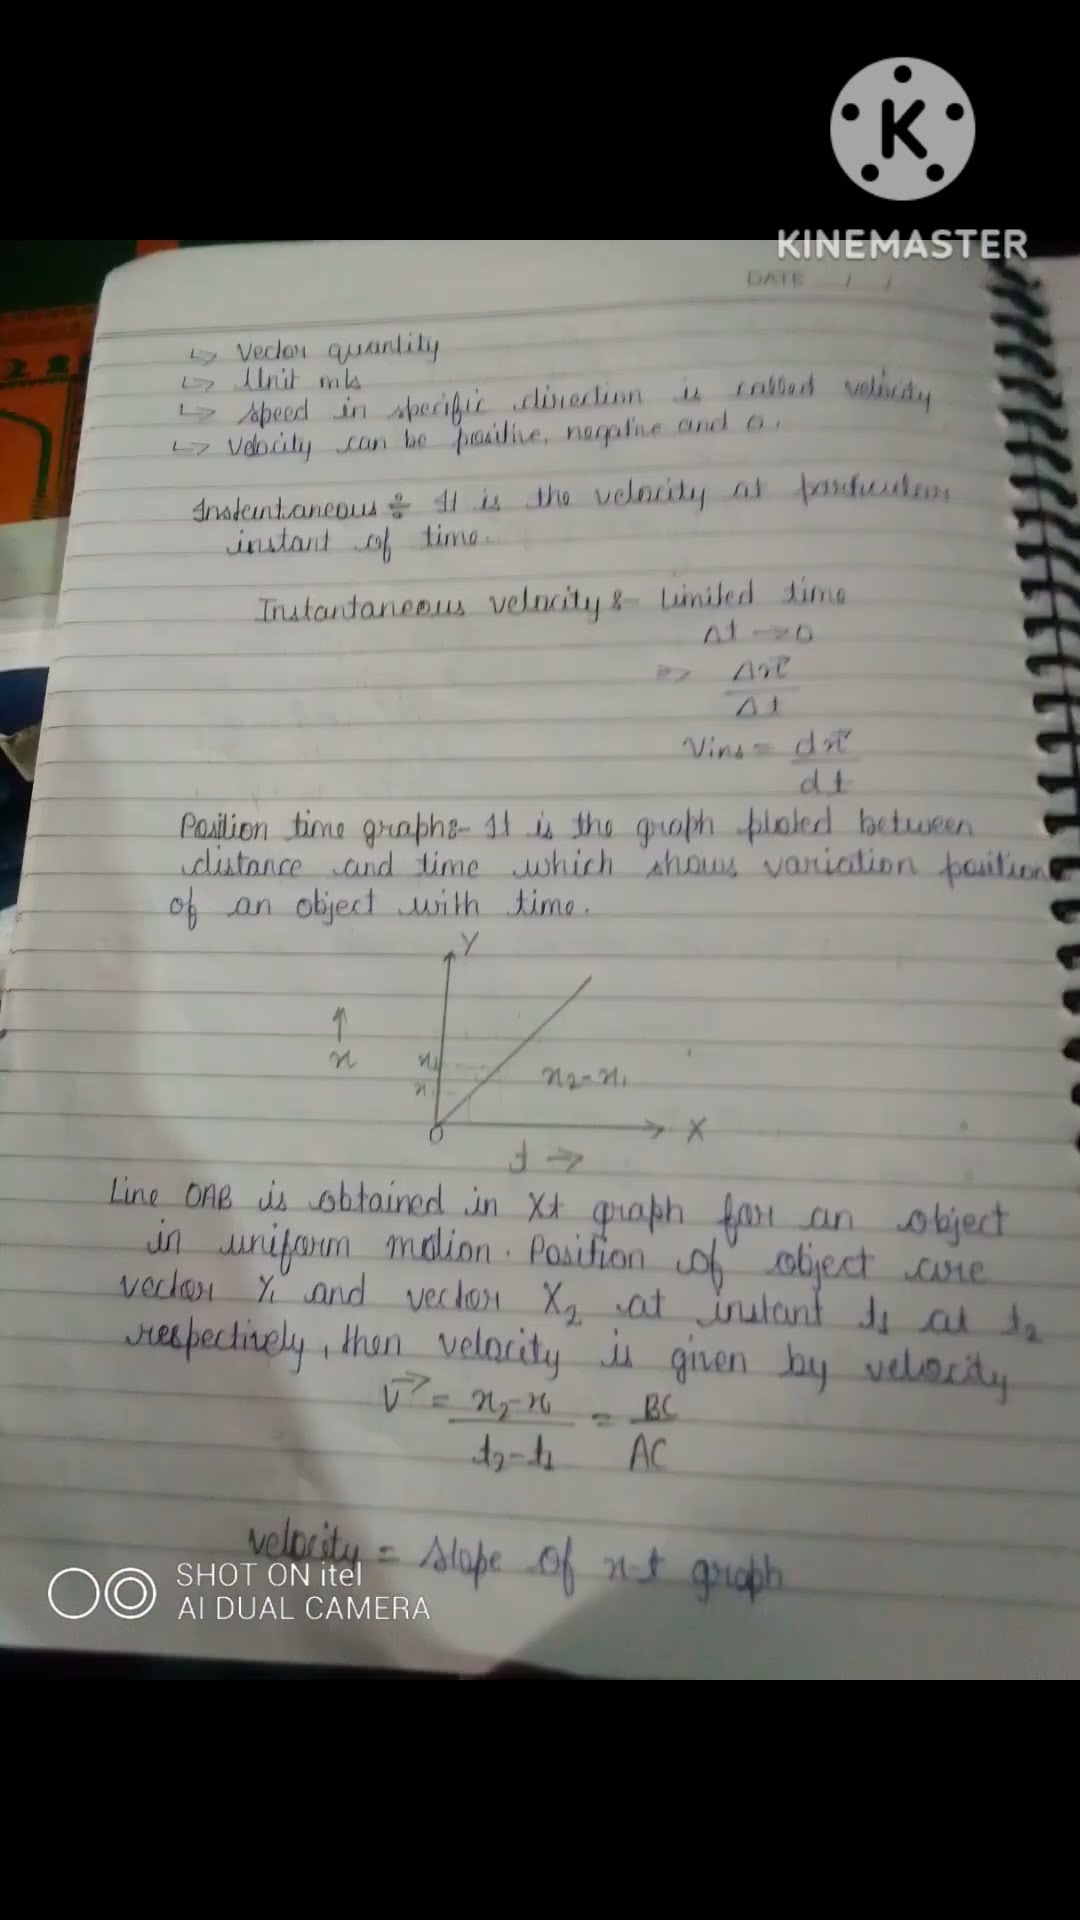 K
KINEMASTER
DATE / /
↳ Vector quantity
↳ Unit m/s
↳ speed in specific direction is called velocity
↳ velocity can be positive, negative and 0.
Instantaneous ÷ It is the velocity at particular
instant of time.
Instantaneous velocity :- Limited time
Δt → 0
⇒ Δx⃗
Δt
Vins = dx⃗
dt
Position time graph:- It is the graph ploted between
distance and time which shows variation position
of an object with time.
Y
↑
x
x₂
x₁
x₂-x₁
O
X
t →
Line OAB is obtained in Xt graph for an object
in uniform motion. Position of object are
vector X₁ and vector X₂ at instant t₁ at t₂
respectively, then velocity is given by velocity
V⃗ = x₂-x₁ = BC
t₂-t₁ AC
velocity = slope of x-t graph
SHOT ON itel
AI DUAL CAMERA